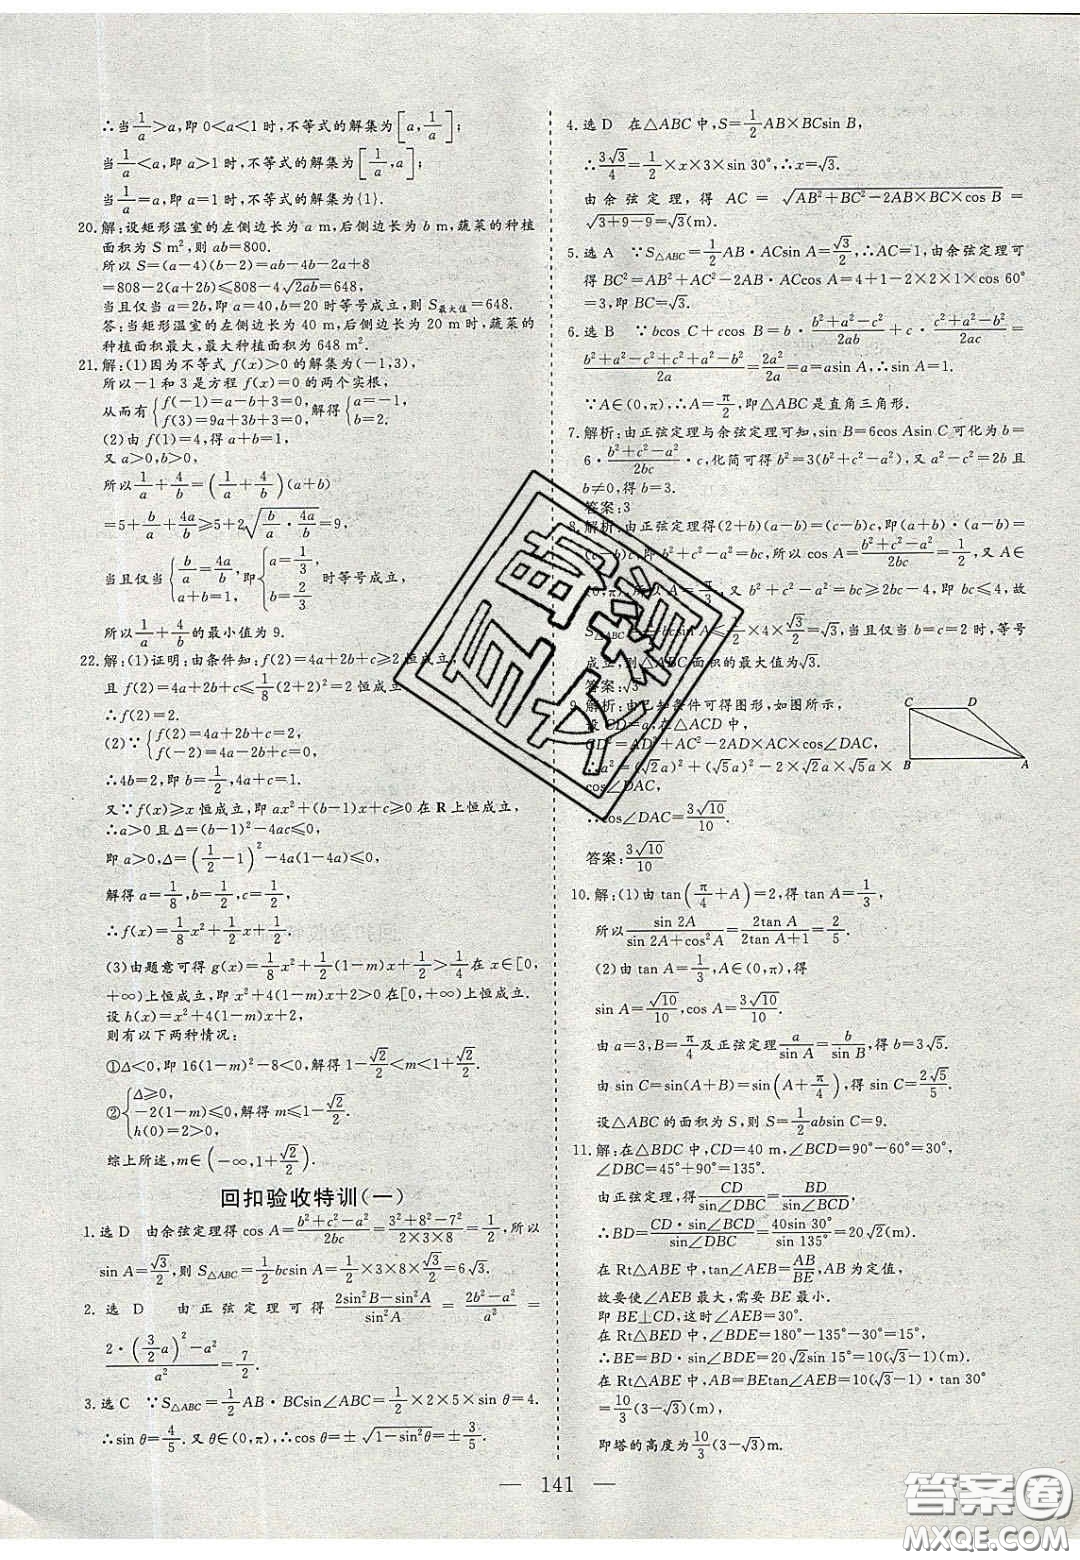 ∴当1/a>a,即0<a<1时,不等式的解集为[a,1/a];
当1/a<a,即a>1时,不等式的解集为[1/a,a];
当1/a=a,即a=1时,不等式的解集为{1}.
20.解:设矩形温室的左侧边长为a m,后侧边长为b m,蔬菜的种植
面积为S m²,则ab=800.
所以S=(a-4)(b-2)=ab-4b-2a+8
=808-2(a+2b)≤808-4√(2ab)=648,
当且仅当a=2b,即a=40,b=20时等号成立,则S最大值=648.
答:当矩形温室的左侧边长为40 m,后侧边长为20 m时,蔬菜的
种植面积最大,最大种植面积为648 m².
21.解:(1)因为不等式f(x)>0的解集为(-1,3),
所以-1和3是方程f(x)=0的两个实根,
从而有{f(-1)=a-b+3=0, f(3)=9a+3b+3=0,解得{a=-1, b=2.
(2)由f(1)=4,得a+b=1,
又a>0,b>0,
所以1/a+4/b=(1/a+4/b)(a+b)
=5+b/a+4a/b≥5+2√(b/a·4a/b)=9,
当且仅当{b/a=4a/b, a+b=1,即{a=1/3, b=2/3时等号成立,
所以1/a+4/b的最小值为9.
22.解:(1)证明:由条件知:f(2)=4a+2b+c≥2恒成立,
且f(2)=4a+2b+c≤1/8(2+2)²=2恒成立
∴f(2)=2.
(2)∵{f(2)=4a+2b+c=2, f(-2)=4a-2b+c=0,
∴4b=2,即b=1/2,4a+c=1,
又∵f(x)≥x恒成立,即ax²+(b-1)x+c≥0在R上恒成立,
∴a>0且Δ=(b-1)²-4ac≤0,
即a>0,Δ=(1/2-1)²-4a(1-4a)≤0,
解得a=1/8,b=1/2,c=1/2,
∴f(x)=1/8x²+1/2x+1/2.
(3)由题意可得g(x)=1/8x²+1/2(1-m)x+1/2>1/4在x∈[0,
+∞)上恒成立,即x²+4(1-m)x+2>0在[0,+∞)上恒成立.
设h(x)=x²+4(1-m)x+2,
则有以下两种情况:
①Δ<0,即16(1-m)²-8<0,解得1-√2/2<m<1+√2/2.
②{Δ≥0, -2(1-m)≤0, h(0)=2>0,解得m≤1-√2/2.
综上所述,m∈(-∞,1+√2/2).
回扣验收特训(一)
1.选D 由余弦定理得cos A=(b²+c²-a²)/2bc=(3²+8²-7²)/(2×3×8)=1/2,所以
sin A=√3/2,则S△ABC=1/2bcsin A=1/2×3×8×√3/2=6√3.
2.选D 由正弦定理可得(2sin²B-sin²A)/sin²A=(2b²-a²)/a²=
(2·(3/2a)²-a²)/a²=7/2.
3.选C ∵S△ABC=1/2AB·BCsin∠ABC=1/2×2×5×sin θ=4.
∴sin θ=4/5.又θ∈(0,π),∴cos θ=±√(1-sin²θ)=±3/5.
4.选D 在△ABC中,S=1/2AB×BCsin B,
∴3√3/4=1/2×x×3×sin 30°,∴x=√3.
由余弦定理,得AC=√(AB²+BC²-2AB×BC×cos B)=
√(3+9-9)=√3(m).
5.选A ∵S△ABC=1/2AB·ACsin A=√3/2,∴AC=1,由余弦定理可
得BC²=AB²+AC²-2AB·ACcos A=4+1-2×2×1×cos 60°
=3,即BC=√3.
6.选B ∵bcos C+ccos B=b·(b²+a²-c²)/2ab+c·(c²+a²-b²)/2ac=
(b²+a²-c²+c²+a²-b²)/2a=2a²/2a=a=asin A,∴sin A=1.
∵A∈(0,π),∴A=π/2,即△ABC是直角三角形.
7.解析:由正弦定理与余弦定理可知,sin B=6cos Asin C可化为b=
6·(b²+c²-a²)/2bc·c,化简可得b²=3(b²+c²-a²),又a²-c²=2b且
b≠0,得b=3.
答案:3
8.解析:由正弦定理得(2+b)(a-b)=(c-b)c,即(a+b)·(a-b)
=(c-b)c,即b²+c²-a²=bc,所以cos A=(b²+c²-a²)/2bc=1/2,又A∈
(0,π),所以A=π/3,又b²+c²-a²=bc≥2bc-4,即bc≤4,故
S△ABC=1/2bcsin A≤1/2×4×√3/2=√3,当且仅当b=c=2时,等号
成立,则△ABC面积的最大值为√3.
答案:√3
9.解析:由已知条件可得图形,如图所示,
设CD=a,在△ACD中,
CD²=AD²+AC²-2AD×AC×cos∠DAC,
∴a²=(√2a)²+(√5a)²-2×√2a×√5a×
cos∠DAC,
∴cos∠DAC=3√10/10.
答案:3√10/10
C D
B A
10.解:(1)由tan(π/4+A)=2,得tan A=1/3,
所以sin 2A/(sin 2A+cos²A)=2tan A/(2tan A+1)=2/5.
(2)由tan A=1/3,A∈(0,π),得
sin A=√10/10,cos A=3√10/10.
由a=3,B=π/4及正弦定理a/sin A=b/sin B,得b=3√5.
由sin C=sin(A+B)=sin(A+π/4),得sin C=2√5/5.
设△ABC的面积为S,则S=1/2absin C=9.
11.解:在△BDC中,CD=40 m,∠BCD=90°-60°=30°,
∠DBC=45°+90°=135°.
由正弦定理,得CD/sin∠DBC=BD/sin∠BCD,
∴BD=CD·sin∠BCD/sin∠DBC=40sin 30°/sin 135°=20√2(m).
在Rt△ABE中,tan∠AEB=AB/BE,AB为定值,
故要使∠AEB最大,需要BE最小.
即BE⊥CD,这时∠AEB=30°.
在Rt△BED中,∠BDE=180°-135°-30°=15°,
∴BE=BD·sin∠BDE=20√2sin 15°=10(√3-1)(m).
在Rt△ABE中,AB=BEtan∠AEB=10(√3-1)·tan 30°=
10/3(3-√3)(m),
即塔的高度为10/3(3-√3)m.
— 141 —
答案圈
MXQE.COM